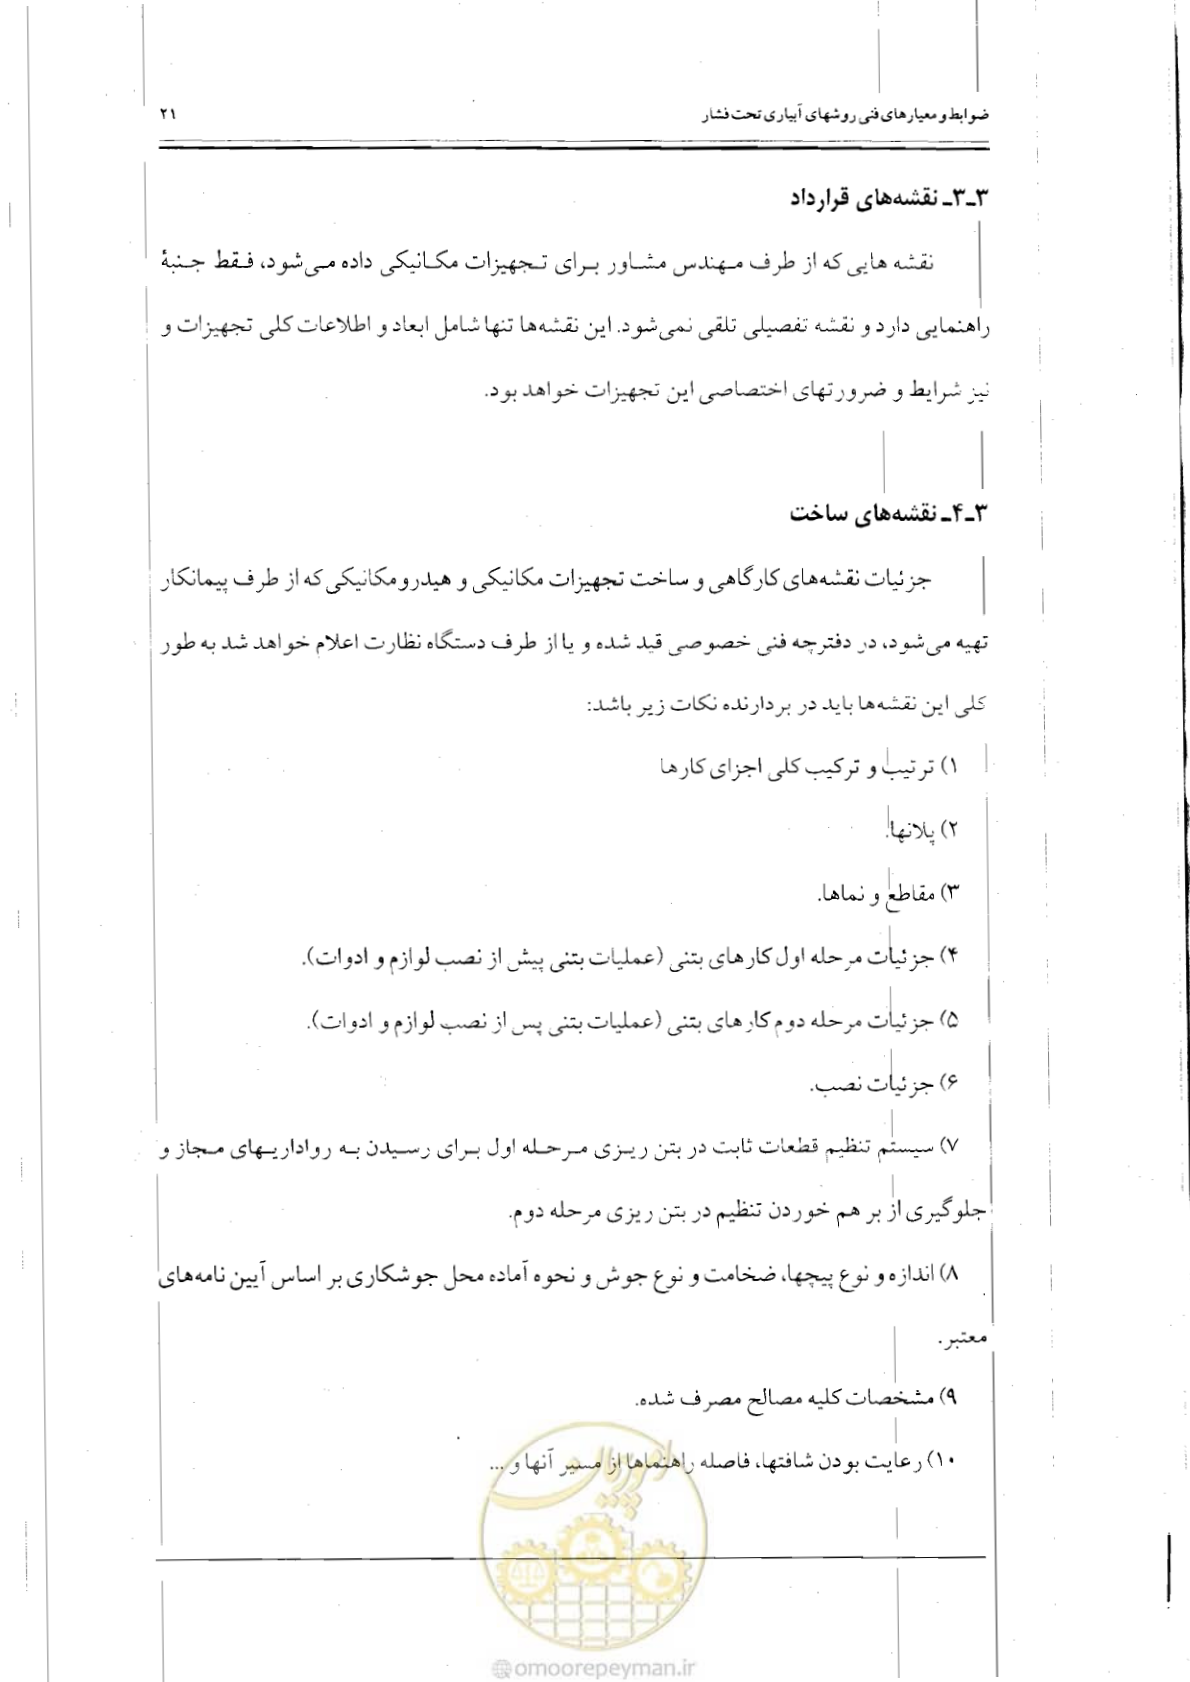 ضوابط و معیارهای فنی روشهای آبیاری تحت فشار ۲۱
۳ـ۳ـ نقشه‌های قرارداد
نقشه هایی که از طرف مهندس مشاور برای تجهیزات مکانیکی داده می‌شود، فقط جنبهٔ
راهنمایی دارد و نقشه تفصیلی تلقی نمی‌شود. این نقشه‌ها تنها شامل ابعاد و اطلاعات کلی تجهیزات و
نیز شرایط و ضرورتهای اختصاصی این تجهیزات خواهد بود.
۳ـ۴ـ نقشه‌های ساخت
جزئیات نقشه‌های کارگاهی و ساخت تجهیزات مکانیکی و هیدرومکانیکی که از طرف پیمانکار
تهیه می‌شود، در دفترچه فنی خصوصی قید شده و یا از طرف دستگاه نظارت اعلام خواهد شد به طور
کلی این نقشه‌ها باید در بردارنده نکات زیر باشد:
۱) ترتیب و ترکیب کلی اجزای کارها
۲) پلانها.
۳) مقاطع و نماها.
۴) جزئیات مرحله اول کارهای بتنی (عملیات بتنی پیش از نصب لوازم و ادوات).
۵) جزئیات مرحله دوم کارهای بتنی (عملیات بتنی پس از نصب لوازم و ادوات).
۶) جزئیات نصب.
۷) سیستم تنظیم قطعات ثابت در بتن ریزی مرحله اول برای رسیدن به رواداریهای مجاز و
جلوگیری از بر هم خوردن تنظیم در بتن ریزی مرحله دوم.
۸) اندازه و نوع پیچها، ضخامت و نوع جوش و نحوه آماده محل جوشکاری بر اساس آیین نامه‌های
معتبر.
۹) مشخصات کلیه مصالح مصرف شده.
۱۰) رعایت بودن شافتها، فاصله راهنماها از مسیر آنها و ...
امور پیمان
@omoorepeyman.ir